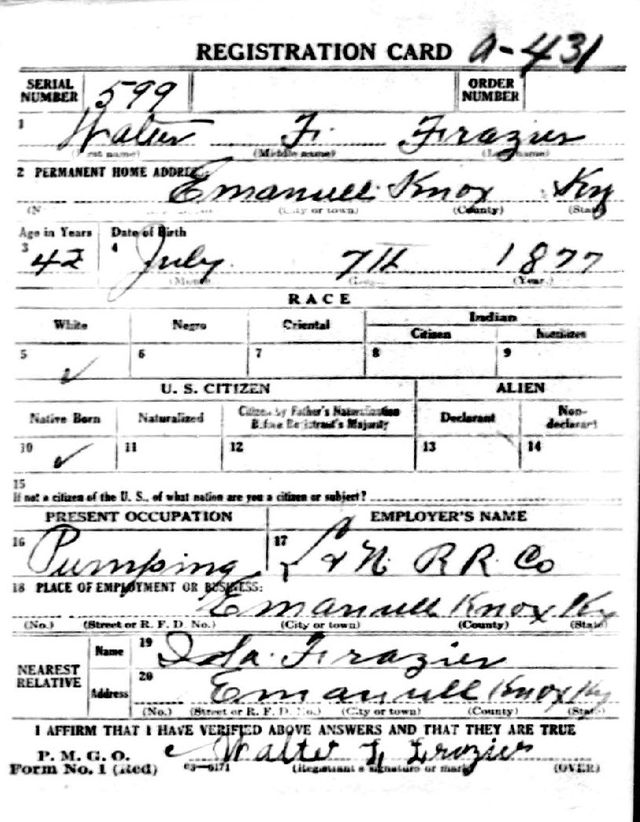 REGISTRATION CARD A-431
SERIAL NUMBER 599 ORDER NUMBER
1 Walter F. Frazier
(First name) (Middle name) (Last name)
2 PERMANENT HOME ADDRESS: Emanuell Knox Ky
(City or town) (County) (State)
Age in Years Date of Birth
3 42 4 July 7th 1877
(Year.)
RACE
White Negro Oriental Indian
Citizen
5 ✓ 6 7 8 9
U. S. CITIZEN ALIEN
Native Born Naturalized Citizen by Father's Naturalization Before Registrant's Majority Declarant Non-declarant
10 ✓ 11 12 13 14
15
If not a citizen of the U. S., of what nation are you a citizen or subject?
PRESENT OCCUPATION EMPLOYER'S NAME
16 Pumping 17 L & N. R R. Co
18 PLACE OF EMPLOYMENT OR BUSINESS:
Emanuell Knox Ky
(No.) (Street or R. F. D. No.) (City or town) (County) (State)
NEAREST RELATIVE Name 19 Ida Frazier
Address 20 Emanuell Knox Ky
(No.) (Street or R. F. D. No.) (City or town) (County) (State)
I AFFIRM THAT I HAVE VERIFIED ABOVE ANSWERS AND THAT THEY ARE TRUE
P. M. G. O.
Form No. 1 (Red) 03—6171 Walter F. Frazier
(Registrant's signature or mark) (OVER)